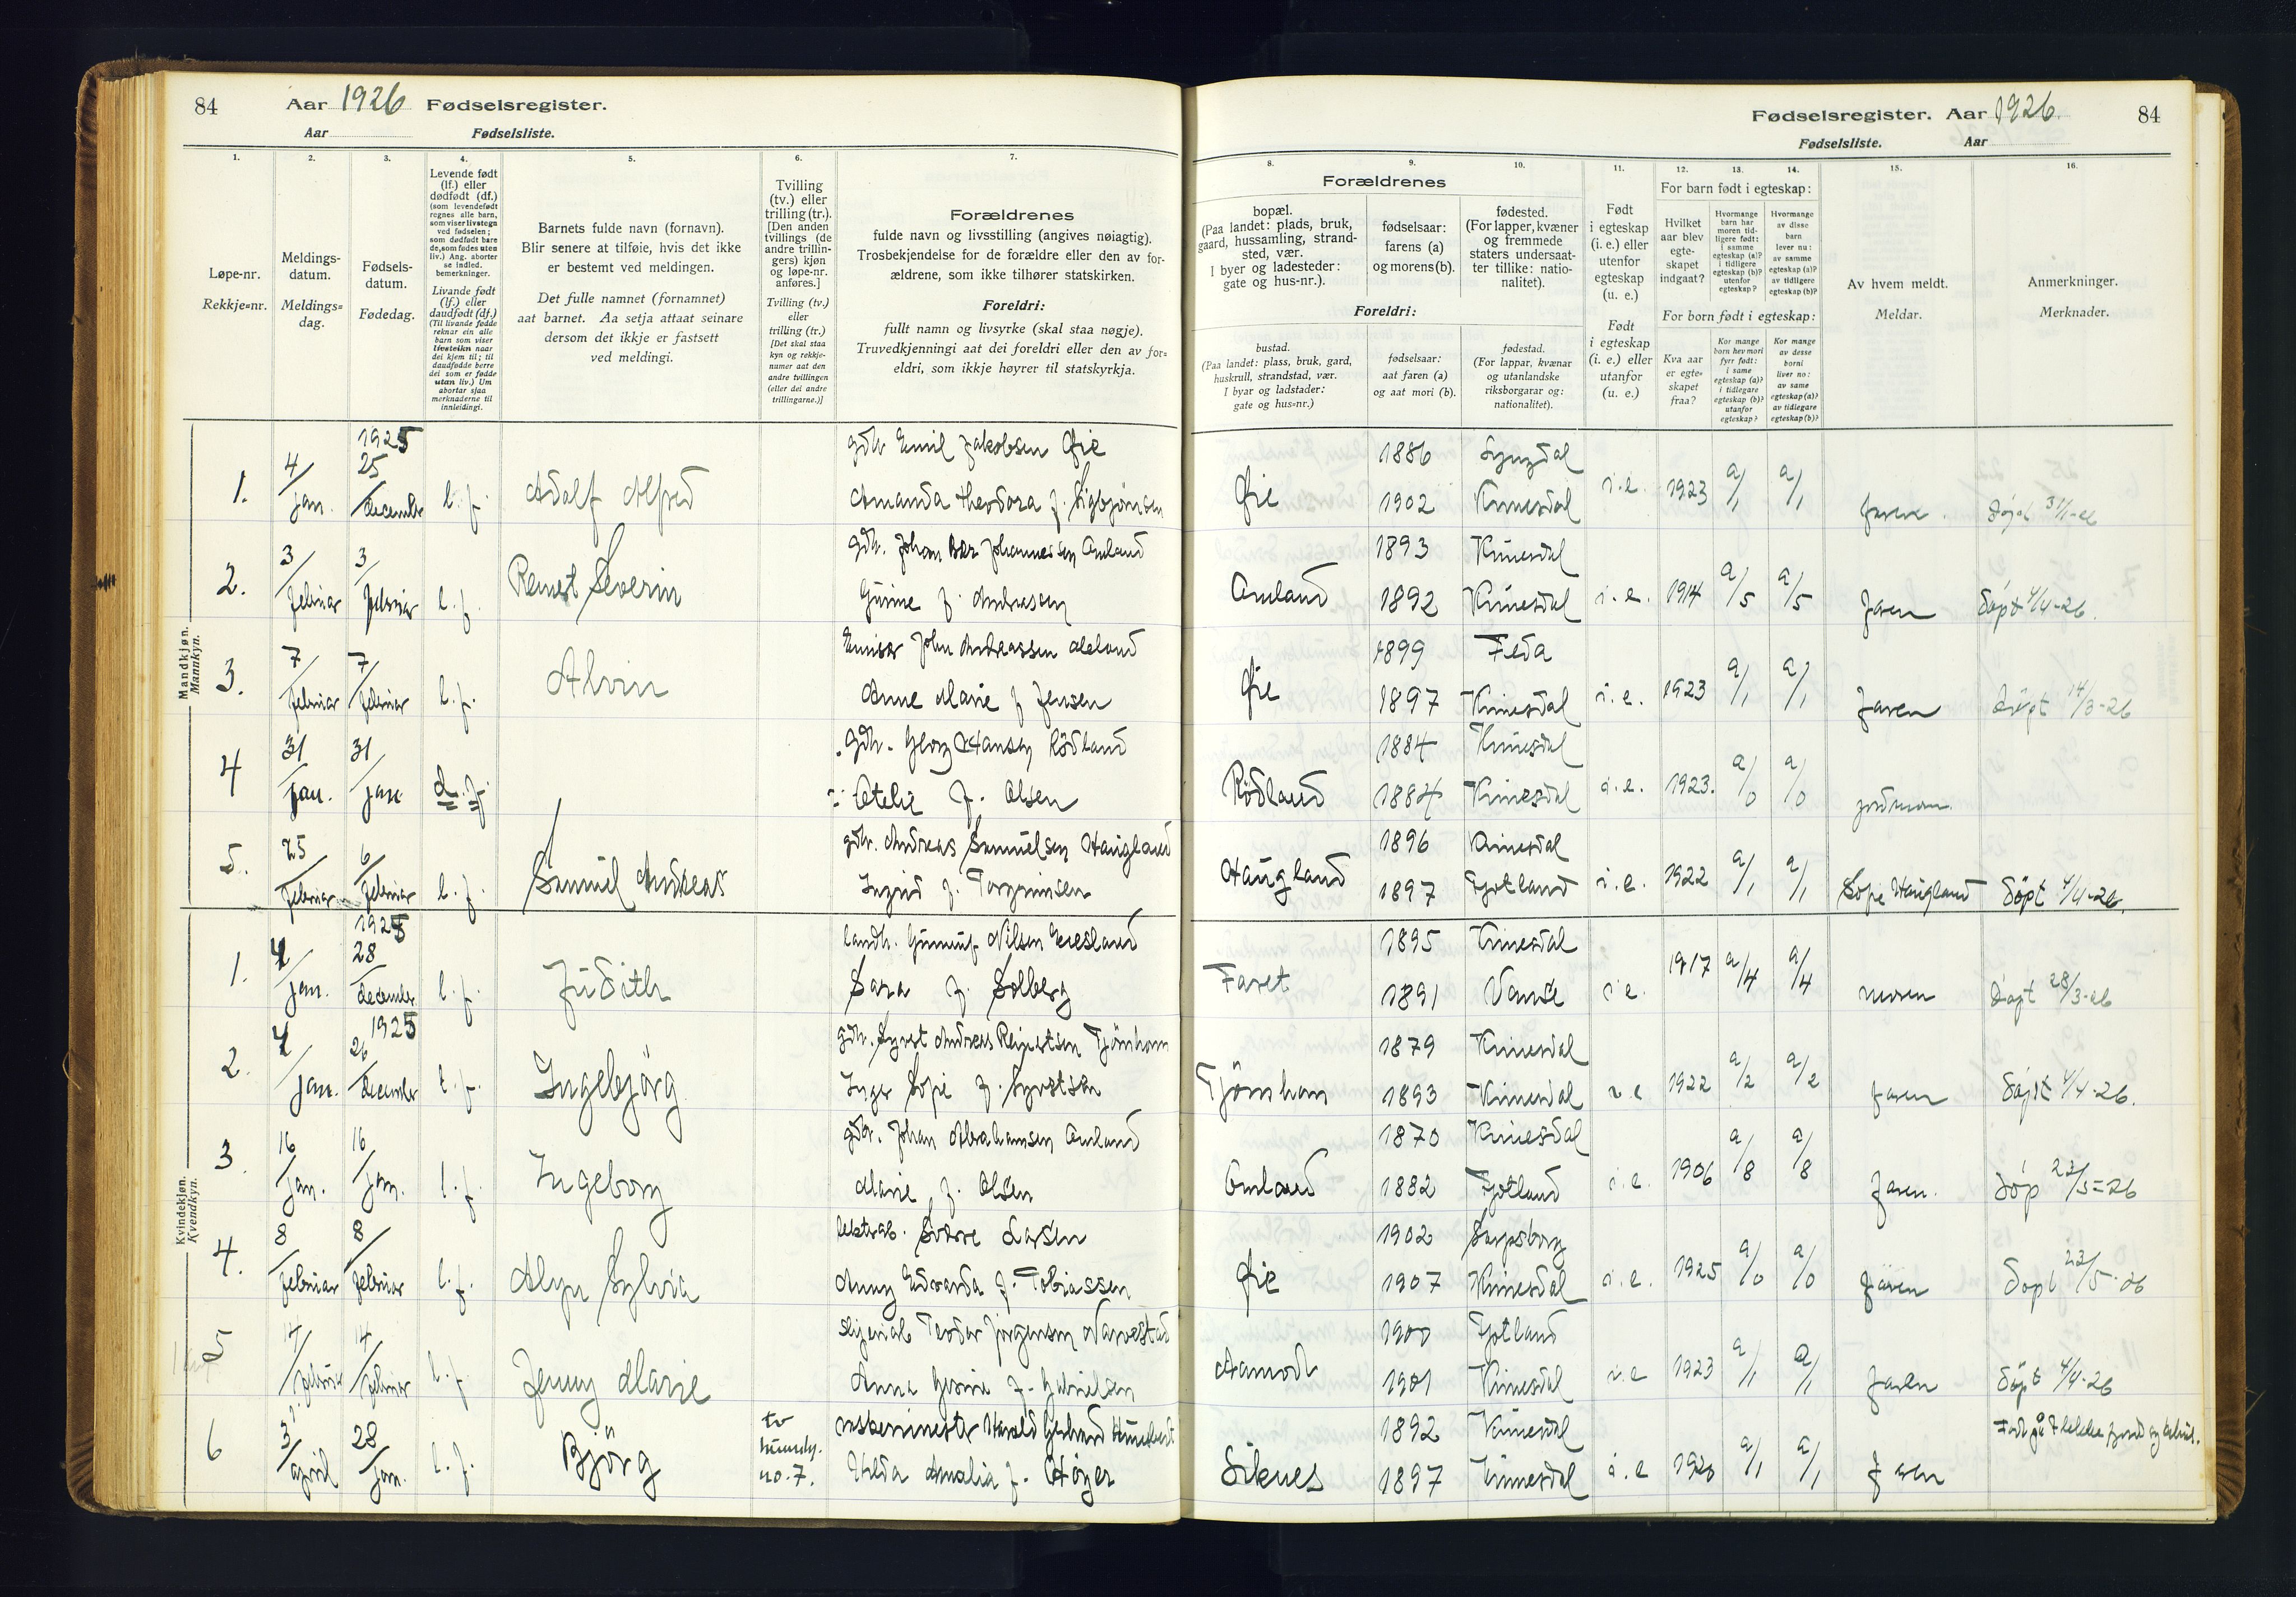 84 Aar 1926 Fødselsregister.
Aar Fødselsliste.
1. 2. 3. 4. 5. 6. 7.
Løpe-nr.
Rekkje-nr.
Meldings-
datum.
Meldings-
dag.
Fødsels-
datum.
Fødedag.
Levende født
(lf.) eller
dødfødt (df.)
(som levendefødt
regnes alle barn,
som viser livstegn
ved fødselen;
som dødfødt bare
de, som fødes uten
liv.) Ang. aborter
se indled.
bemerkninger.
Livande født
(lf.) eller
daudfødt (df.)
(Til livande fødde
reknar ein alle
barn som viser
livsteikn naar
dei kjem til; til
daudfødde berre
dei som er fødde
utan liv.) Um
abortar sjaa
merknaderne til
innleidingi.
Barnets fulde navn (fornavn).
Blir senere at tilføie, hvis det ikke
er bestemt ved meldingen.
Det fulle namnet (fornamnet)
aat barnet. Aa setja attaat seinare
dersom det ikkje er fastsett
ved meldingi.
Tvilling
(tv.) eller
trilling (tr.).
[Den anden
tvillings (de
andre trillin-
gers) kjøn
og løpe-nr.
anføres.]
Tvilling (tv.)
eller
trilling (tr.)
[Det skal staa
kyn og rekkje-
numer aat den
andre tvillingen
(eller dei andre
trillingarne.)]
Forældrenes
fulde navn og livsstilling (angives nøiagtig).
Trosbekjendelse for de forældre eller den av for-
ældrene, som ikke tilhører statskirken.
Foreldri:
fullt namn og livsyrke (skal staa nøgje).
Truvedkjenningi aat dei foreldri eller den av for-
eldri, som ikkje høyrer til statskyrkja.
Mandkjøn.
Mannkyn.
1. 4/jan. 1925 25/december l.f. Adolf Alfred gdbr Emil Jakobsen Øie
Amanda Theodora f. Sigbjørnsen
2. 3/februar 3/februar l.f. Severin gdbr. Johan Johannessen Omland
Gurine f. Andreasen
3. 7/februar 7/februar l.f. Alvin John Andreassen
Anne Marie f Jensen
4 31/jan. 31/jan d.f. gdbr. Georg Hansen Rödland
Otelie f. Olsen
5. 25/februar 6/februar l.f. Samuel Andreas gdbr. Andreas Samuelsen Haugland
Ingrid f. Torgrimsen
Kvindekjøn.
Kvendkyn.
1. 4/jan. 1925 28/december l.f. Judith Nilsen
Sara f. Solberg
2. 4/jan. 1925 26/december l.f. Ingebjörg gdbr. Syvert Andreas Reiertsen Tjömhom
Inger Sofie f. Syvertsen
3. 16/jan. 16/jan. l.f. Ingeborg gdbr. Johan Abrahamsen Omland
Marie f. Olsen
4. 8/februar 8/februar l.f. Sylvia Sverre Larsen
Anny Edvarda f. Tobiassen
5 14/februar 14/februar l.f. Jenny Marie Teodor Jörgensen
Anna Gesine f. Gabrielsen
6 3/april 28/jan. l.f. Björg tv
no. 7.
Harald
Hilda Amalia f.
Fødselsregister. Aar 1926. 84
Fødselsliste. Aar
8. 9. 10. 11. 12. 13. 14. 15. 16.
Forældrenes
bopæl.
(Paa landet: plads, bruk,
gaard, hussamling, strand-
sted, vær.
I byer og ladesteder:
gate og hus-nr.).
fødselsaar:
farens (a)
og morens (b).
fødested.
(For lapper, kvæner
og fremmede
staters undersaat-
ter tillike: natio-
nalitet).
Foreldri:
bustad.
(Paa landet: plass, bruk, gard,
huskrull, strandstad, vær.
I byar og ladstader:
gate og hus-nr.)
fødselsaar:
aat faren (a)
og aat mori (b).
fødestad.
(For lappar, kvænar
og utanlandske
riksborgarar og:
nationalitet).
Født
i egteskap
(i. e.) eller
utenfor
egteskap
(u. e.)
Født
i egteskap
(i. e.) eller
utanfor
(u. e.)
For barn født i egteskap:
Hvilket
aar blev
egte-
skapet
indgaat?
Hvormange
barn har
moren tid-
ligere født:
i samme
egteskap (a)?
i tidligere
egteskap (b)?
utenfor
egteskap?
Hvormange
av disse
barn
lever nu:
av samme
egteskap (a)?
av tidligere
egteskap (b)?
For born født i egteskap:
Kva aar
er egte-
skapet
fraa?
Kor mange
born hev mori
fyrr født:
i same
egteskap (a)?
i tidlegare
egteskap (b)?
utanfor
egteskap?
Kor mange
av desse
borni
liver no:
av same
egteskap (a)?
av tidlegare
egteskap (b)?
Av hvem meldt.
Meldar.
Anmerkninger.
Merknader.
Øie 1886 Lyngdal
1902 Kvinesdal i.e. 1923 a/1 a/1 faren 31/1-26
Omland 1893 Kvinesdal
1892 Kvinesdal i.e. 1914 a/5 a/5 faren döpt 4/4-26.
Øie 1899 Feda
1897 Kvinesdal i.e. 1923 a/1 a/1 faren döpt 14/3-26
Rödland 1884 Kvinesdal
1884 Kvinesdal i.e. 1923. a/0 a/0 jordmoren
Haugland 1896 Kvinesdal
1897 Fjotland i.e. 1922 a/1 a/1 Haugland döpt 4/4-26.
Faret 1895 Kvinesdal
1891 Vanse i.e. 1917 a/4 a/4 moren döpt 28/3-26
Tjömhom 1879 Kvinesdal
1893 Kvinesdal i.e 1922 a/2 a/2 faren döpt 4/4-26.
Omland 1870 Kvinesdal
1882 Fjotland i.e. 1906 a/8 a/8 faren. döp 23/5=26
Øie 1902 Sarpsborg
1907 Kvinesdal i.e. 1925 a/0 a/0 faren döpt 23/5-26
Aamodt 1900 Fjotland
1901 Kvinesdal i.e 1923 a/1 a/1 faren döpt 4/4-26
1892 Kvinesdal
1897 Kvinesdal i.e 1920 a/1 a/1 faren